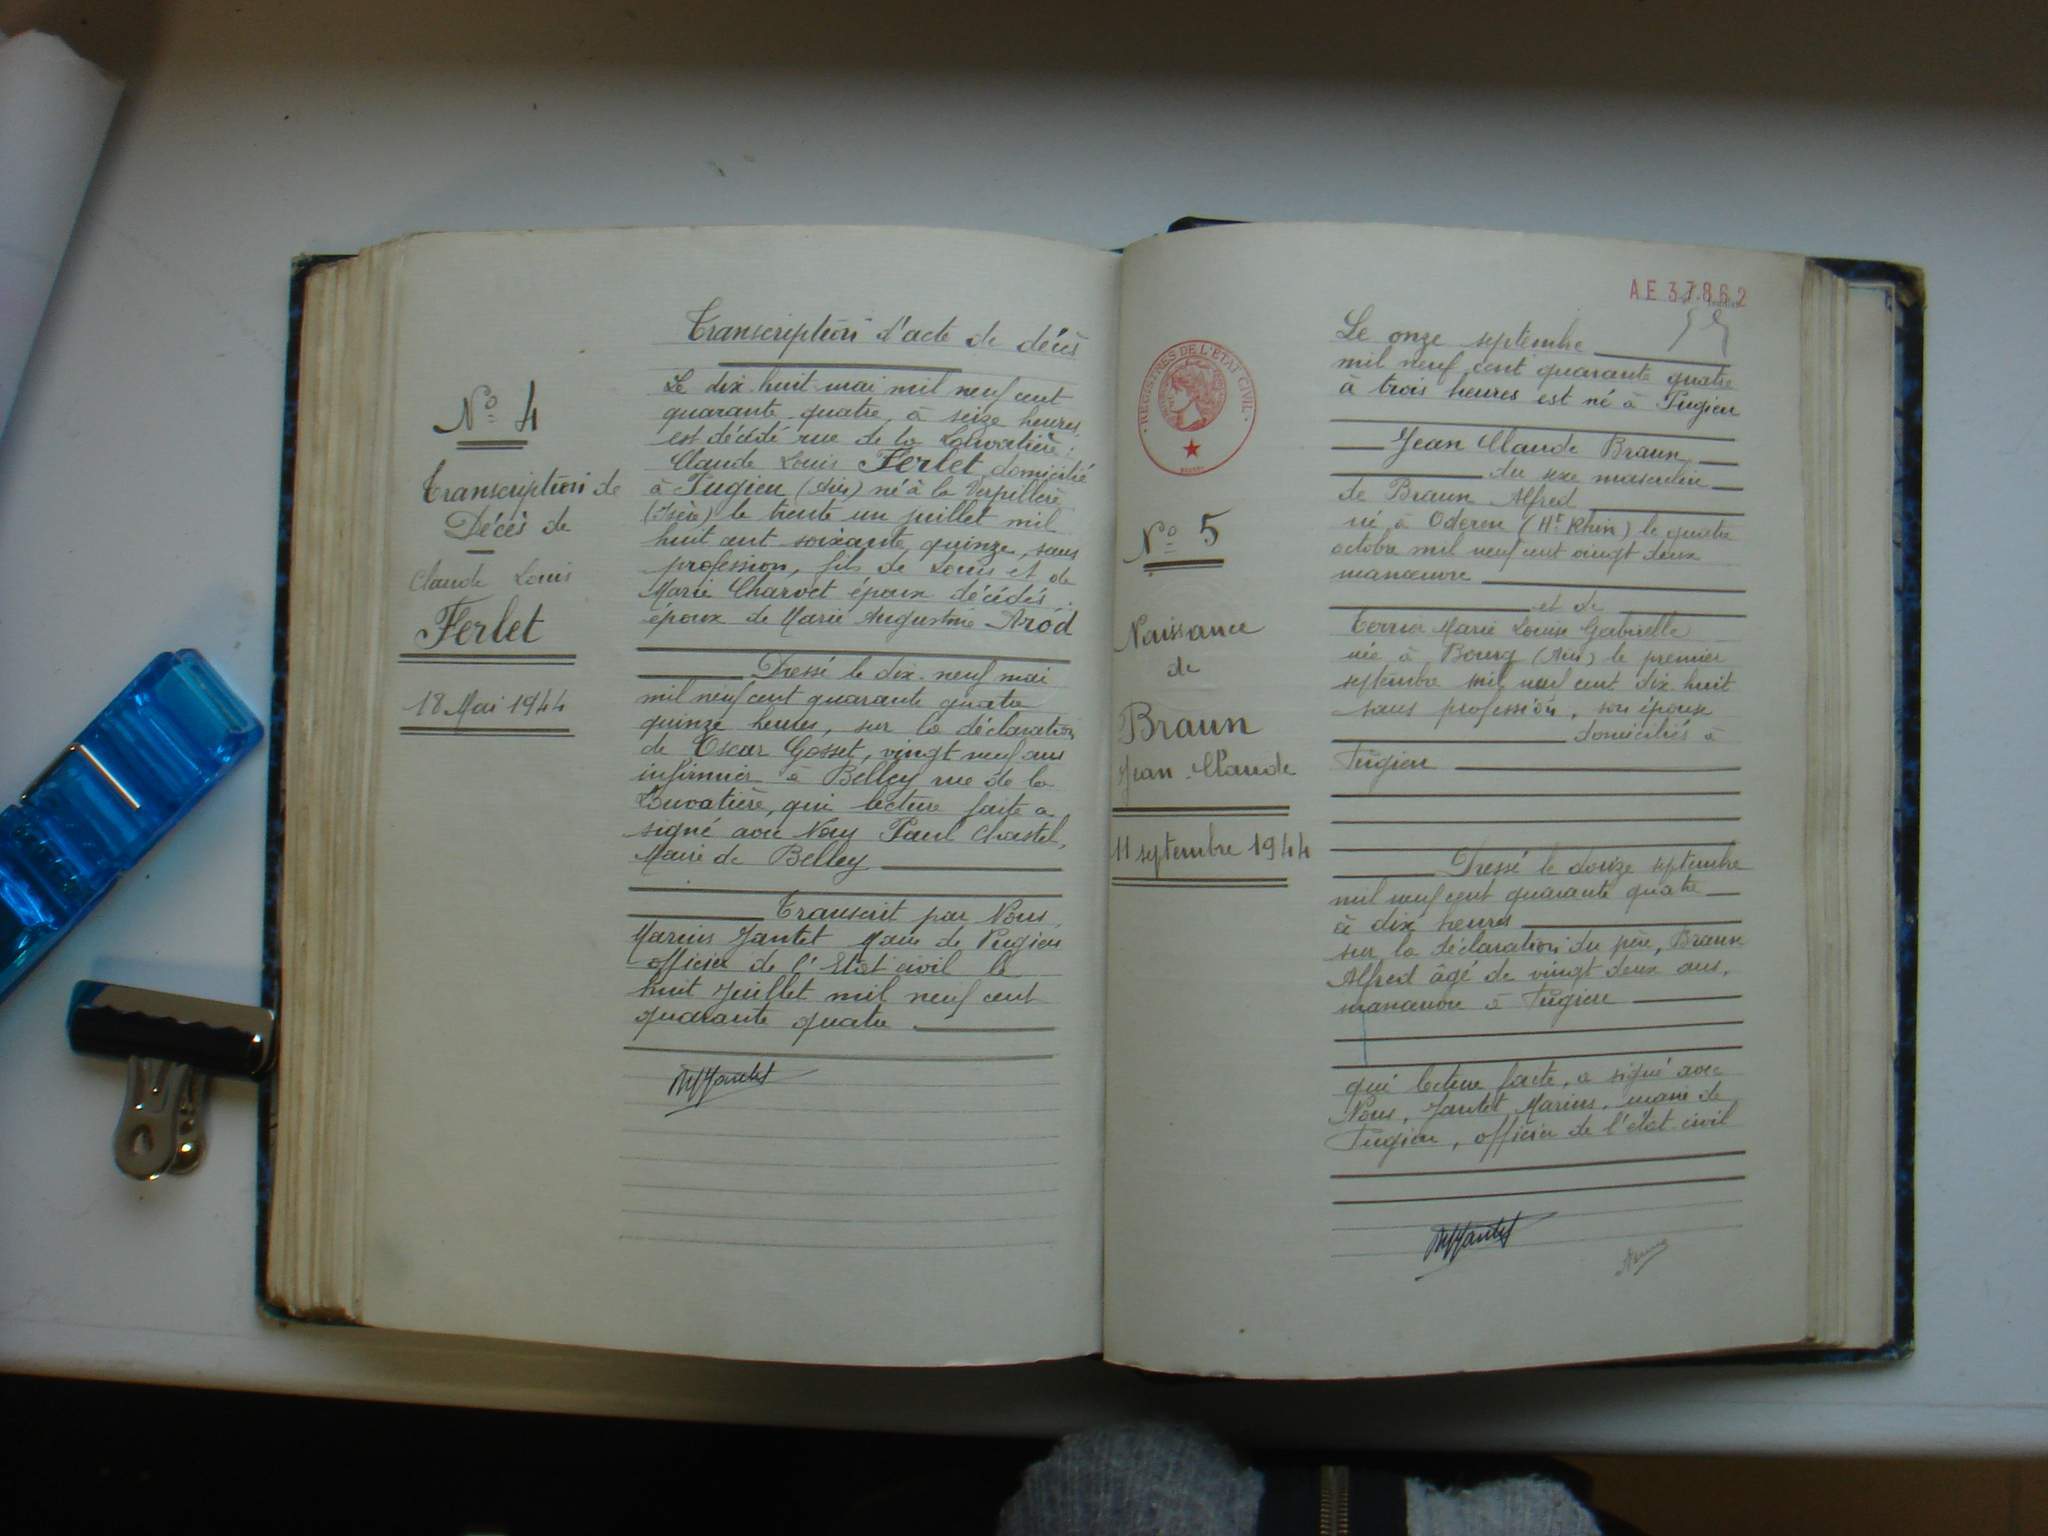 Nº 4
Transcription de
Décès de
Claude Louis
Ferlet
18 Mai 1944
Transcription d'acte de décès
Le dix-huit mai mil neuf cent
quarante quatre, à seize heures,
est décédé rue de la Louvatière :
Claude Louis Ferlet domicilié
à Pugieu (Ain) né à la Verpillère
(Isère) le trente un juillet mil
huit cent soixante quinze, sans
profession, fils de Louis et de
Marie Charvet époux décédés
époux de Marie Augustine Arod
Dressé le dix-neuf mai
mil neuf cent quarante quatre
quinze heures, sur la déclaration
de Oscar Gosset, vingt neuf ans
infirmier à Belley rue de la
Louvatière, qui lecture faite a
signé avec Nous Paul Chastel,
Maire de Belley
Transcrit par Nous
Marius Jantet Maire de Pugieu
officier de l'Etat civil le
huit Juillet mil neuf cent
quarante quatre
MJantet
AE 37862
REGISTRES DE L'ÉTAT CIVIL
Nº 5
Naissance
de
Braun
Jean-Claude
11 septembre 1944
Le onze septembre
mil neuf cent quarante quatre
à trois heures est né à Pugieu
Jean Claude Braun
du sexe masculin
de Braun Alfred
né à Oderen (Ht Rhin) le quatre
octobre mil neuf cent vingt deux
manœuvre
et de
Marie Louise Gabrielle
née à Bourg (Ain) le premier
septembre mil neuf cent dix-huit
sans profession, son épouse
domiciliés à
Pugieu
Dressé le douze septembre
mil neuf cent quarante quatre
à dix heures
sur la déclaration du père, Braun
Alfred âgé de vingt deux ans,
manœuvre à Pugieu
qui lecture faite, a signé avec
Nous, Jantet Marius, maire de
Pugieu, officier de l'état-civil
MJantet